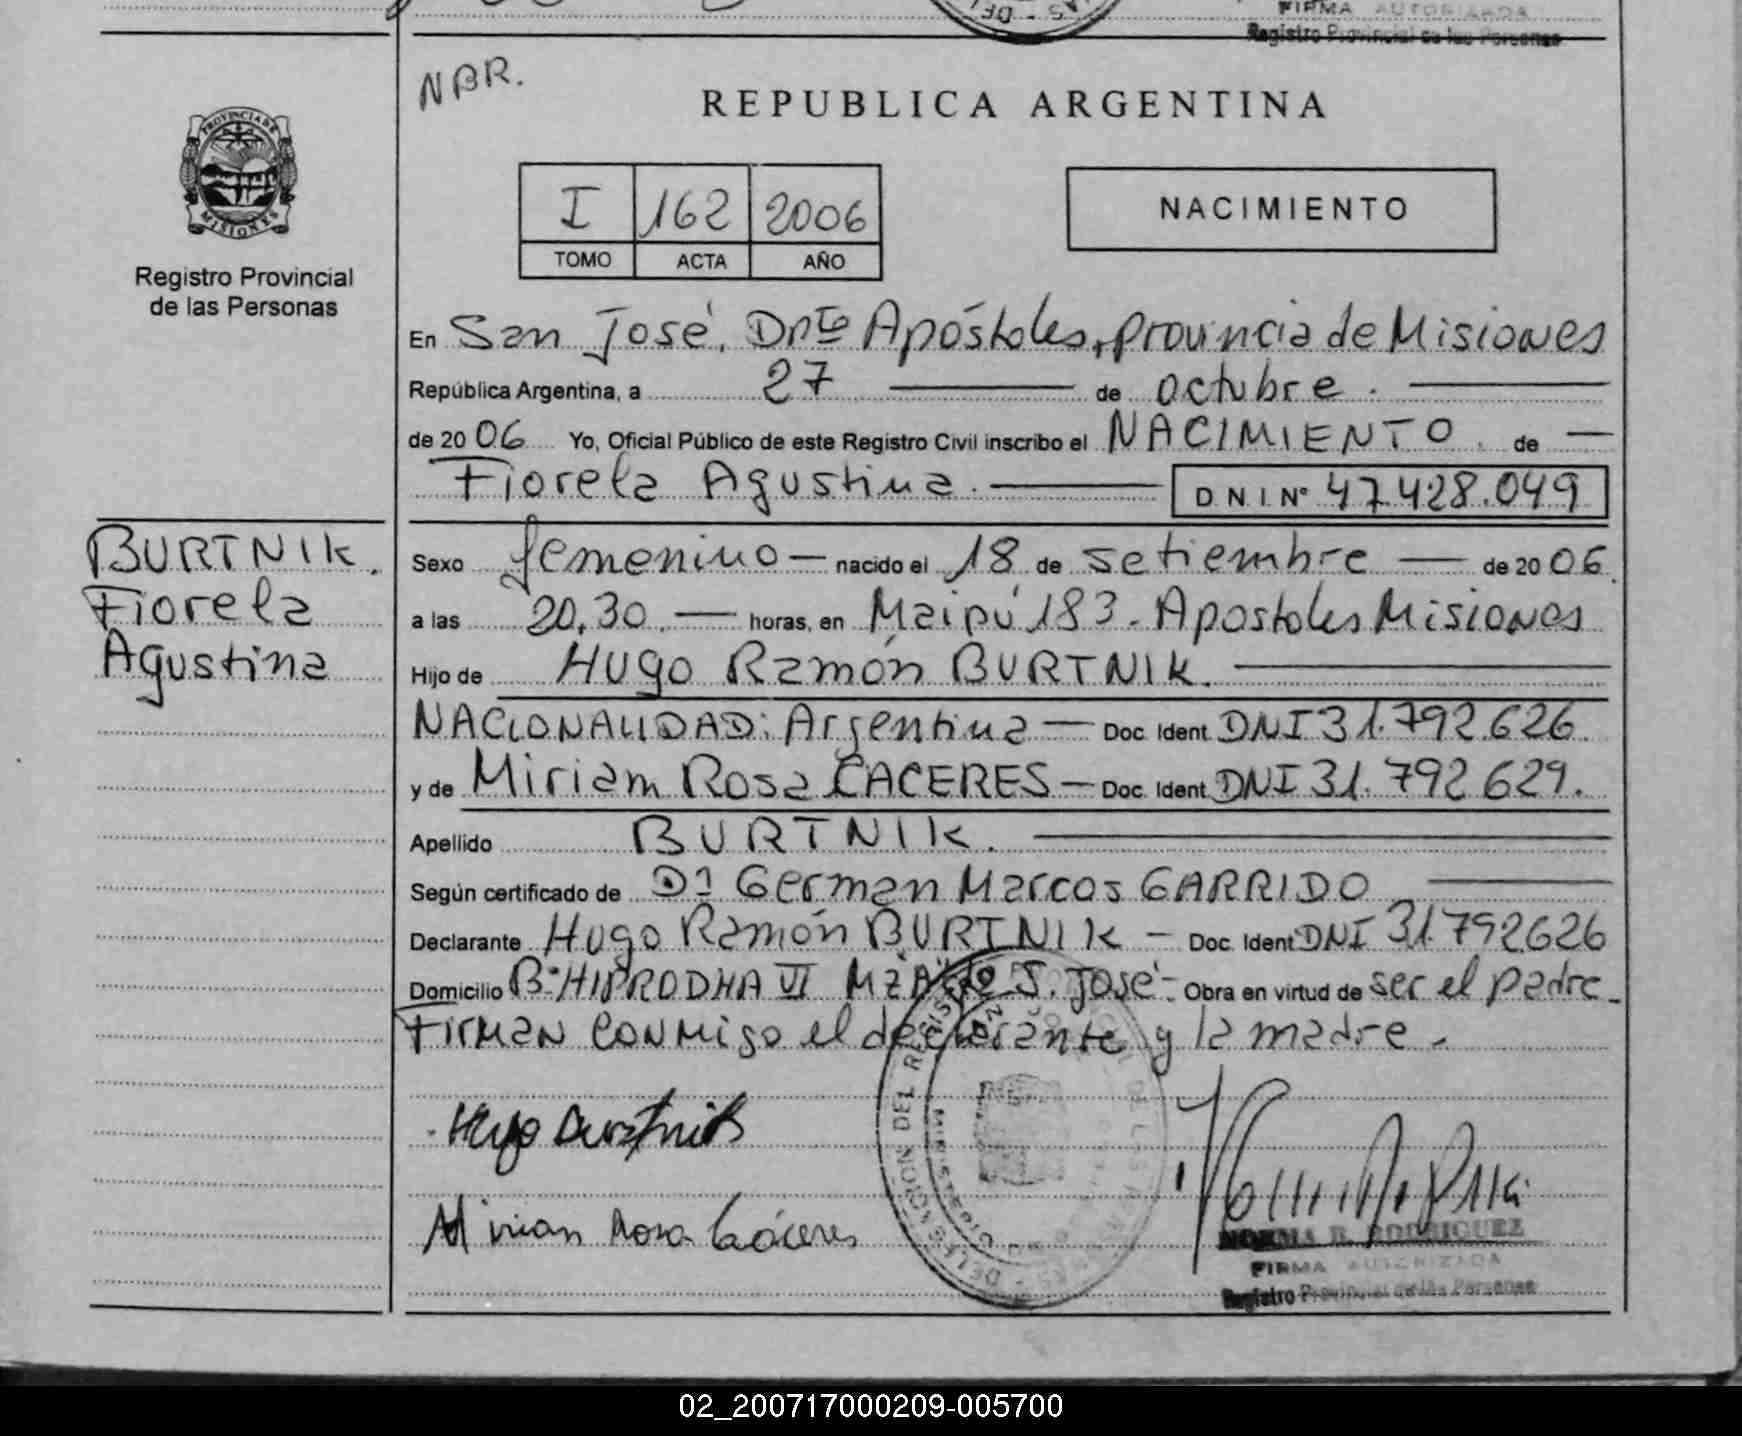 FIRMA AUTORIZADA
Registro Provincial de las Personas
NBR.
REPUBLICA ARGENTINA
PROVINCIA DE
MISIONES
Registro Provincial
de las Personas
I 162 2006
TOMO ACTA AÑO
NACIMIENTO
En San José, Dpto Apóstoles, provincia de Misiones
República Argentina, a 27 de octubre.
de 2006 Yo, Oficial Público de este Registro Civil inscribo el NACIMIENTO. de
Fiorela Agustina. D.N.I. Nº 47.428.049
BURTNIK.
Fiorela
Agustina
Sexo femenino nacido el 18 de setiembre de 2006.
a las 20,30. horas, en Maipú 183. Apostoles Misiones
Hijo de Hugo Ramón BURTNIK.
NACIONALIDAD: Argentina Doc. Ident. DNI 31.792.626.
y de Miriam Rosa CACERES Doc. Ident. DNI 31.792629.
Apellido BURTNIK.
Según certificado de German Marcos GARRIDO
Declarante Hugo Ramón BURTNIK Doc. Ident DNI 31.792626
Domicilio Bº HIPRODHA VI MZ "A" S. José Obra en virtud de ser el padre.
Firman conmigo el declarante y la madre.
Hugo Burtnik
Mirian Rosa Cáceres
NORMA B. RODRIGUEZ
FIRMA AUTORIZADA
Registro Provincial de las Personas
02_200717000209-005700